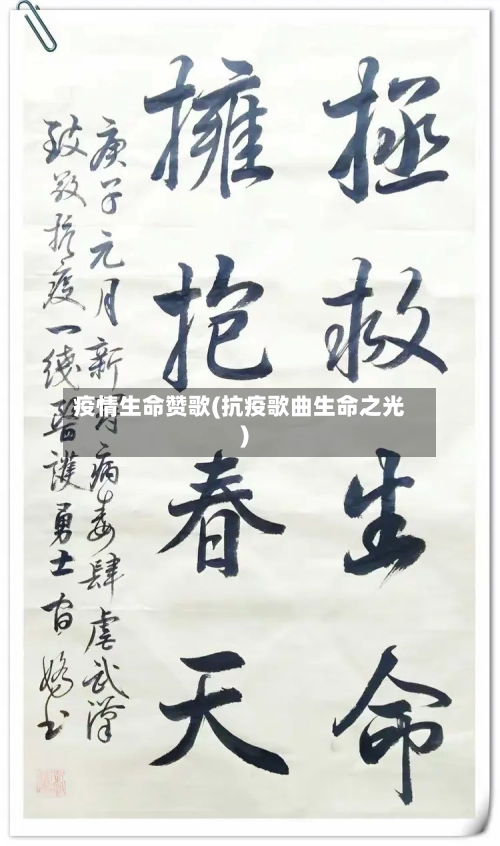 拯救生命
擁抱春天
庚子元月新冠病毒肆虐武漢
致敬抗疫一线醫護勇士
疫情生命赞歌(抗疫歌曲生命之光
)